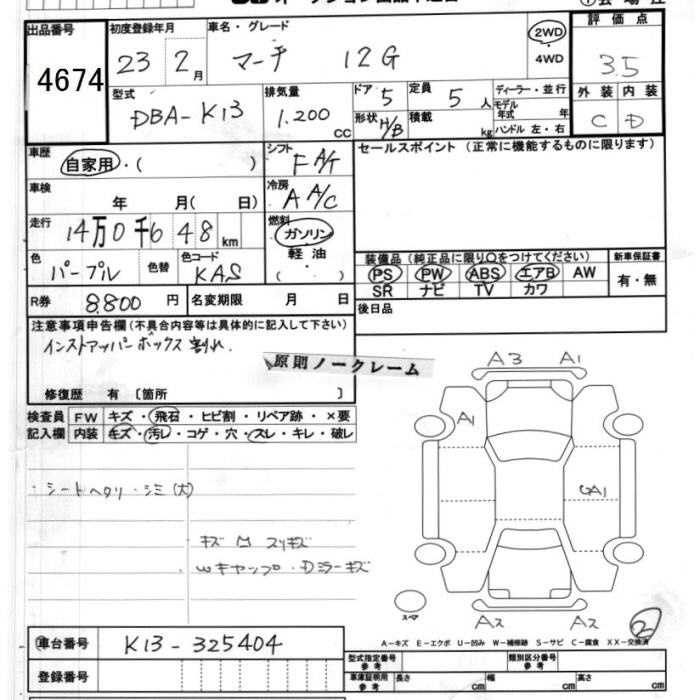 出品番号
4674
初度登録年月
23 2月
車名・グレード
マーチ 12G
2WD
4WD
評価点
3.5
外装 内装
C D
型式
DBA-K13
排気量
1.200 cc
ドア 5
形状 H/B
定員 5 人
積載 kg
ディーラー・並行
モデル年式 年
ハンドル 左・右
車歴
自家用・( )
シフト
F A/T
セールスポイント (正常に機能するものに限ります)
車検
年 月( 日)
冷房
A A/C
走行
14万0千648 km
燃料
ガソリン
軽油
( )
色
パープル
色替
色コード
KAS
装備品(純正品に限り○をつけてください)
新車保証書
PS PW ABS エアB AW
SR ナビ TV カワ
有・無
R券 8.800 円
名変期限 月 日
後日品
注意事項申告欄(不具合内容等は具体的に記入して下さい)
インストアッパーボックス割れ.
原則ノークレーム
修復歴 有 〔箇所 〕
検査員記入欄
FW キズ・飛石・ヒビ割・リペア跡・×要
内装 キズ・汚レ・コゲ・穴・スレ・キレ・破レ
・シートヘタリ・シミ(大)
キズ M スリキズ
Wキャップ・Dミラーキズ
A3 A1
A1
A2 A2
スペア
2
A-キズ E-エクボ U-凹み W-補修跡 S-サビ C-腐食 XX-交換済
車台番号
K13-325404
型式指定番号
参考
類別区分番号
参考
登録番号
車庫証明用
参考
長さ cm
幅 cm
高さ cm